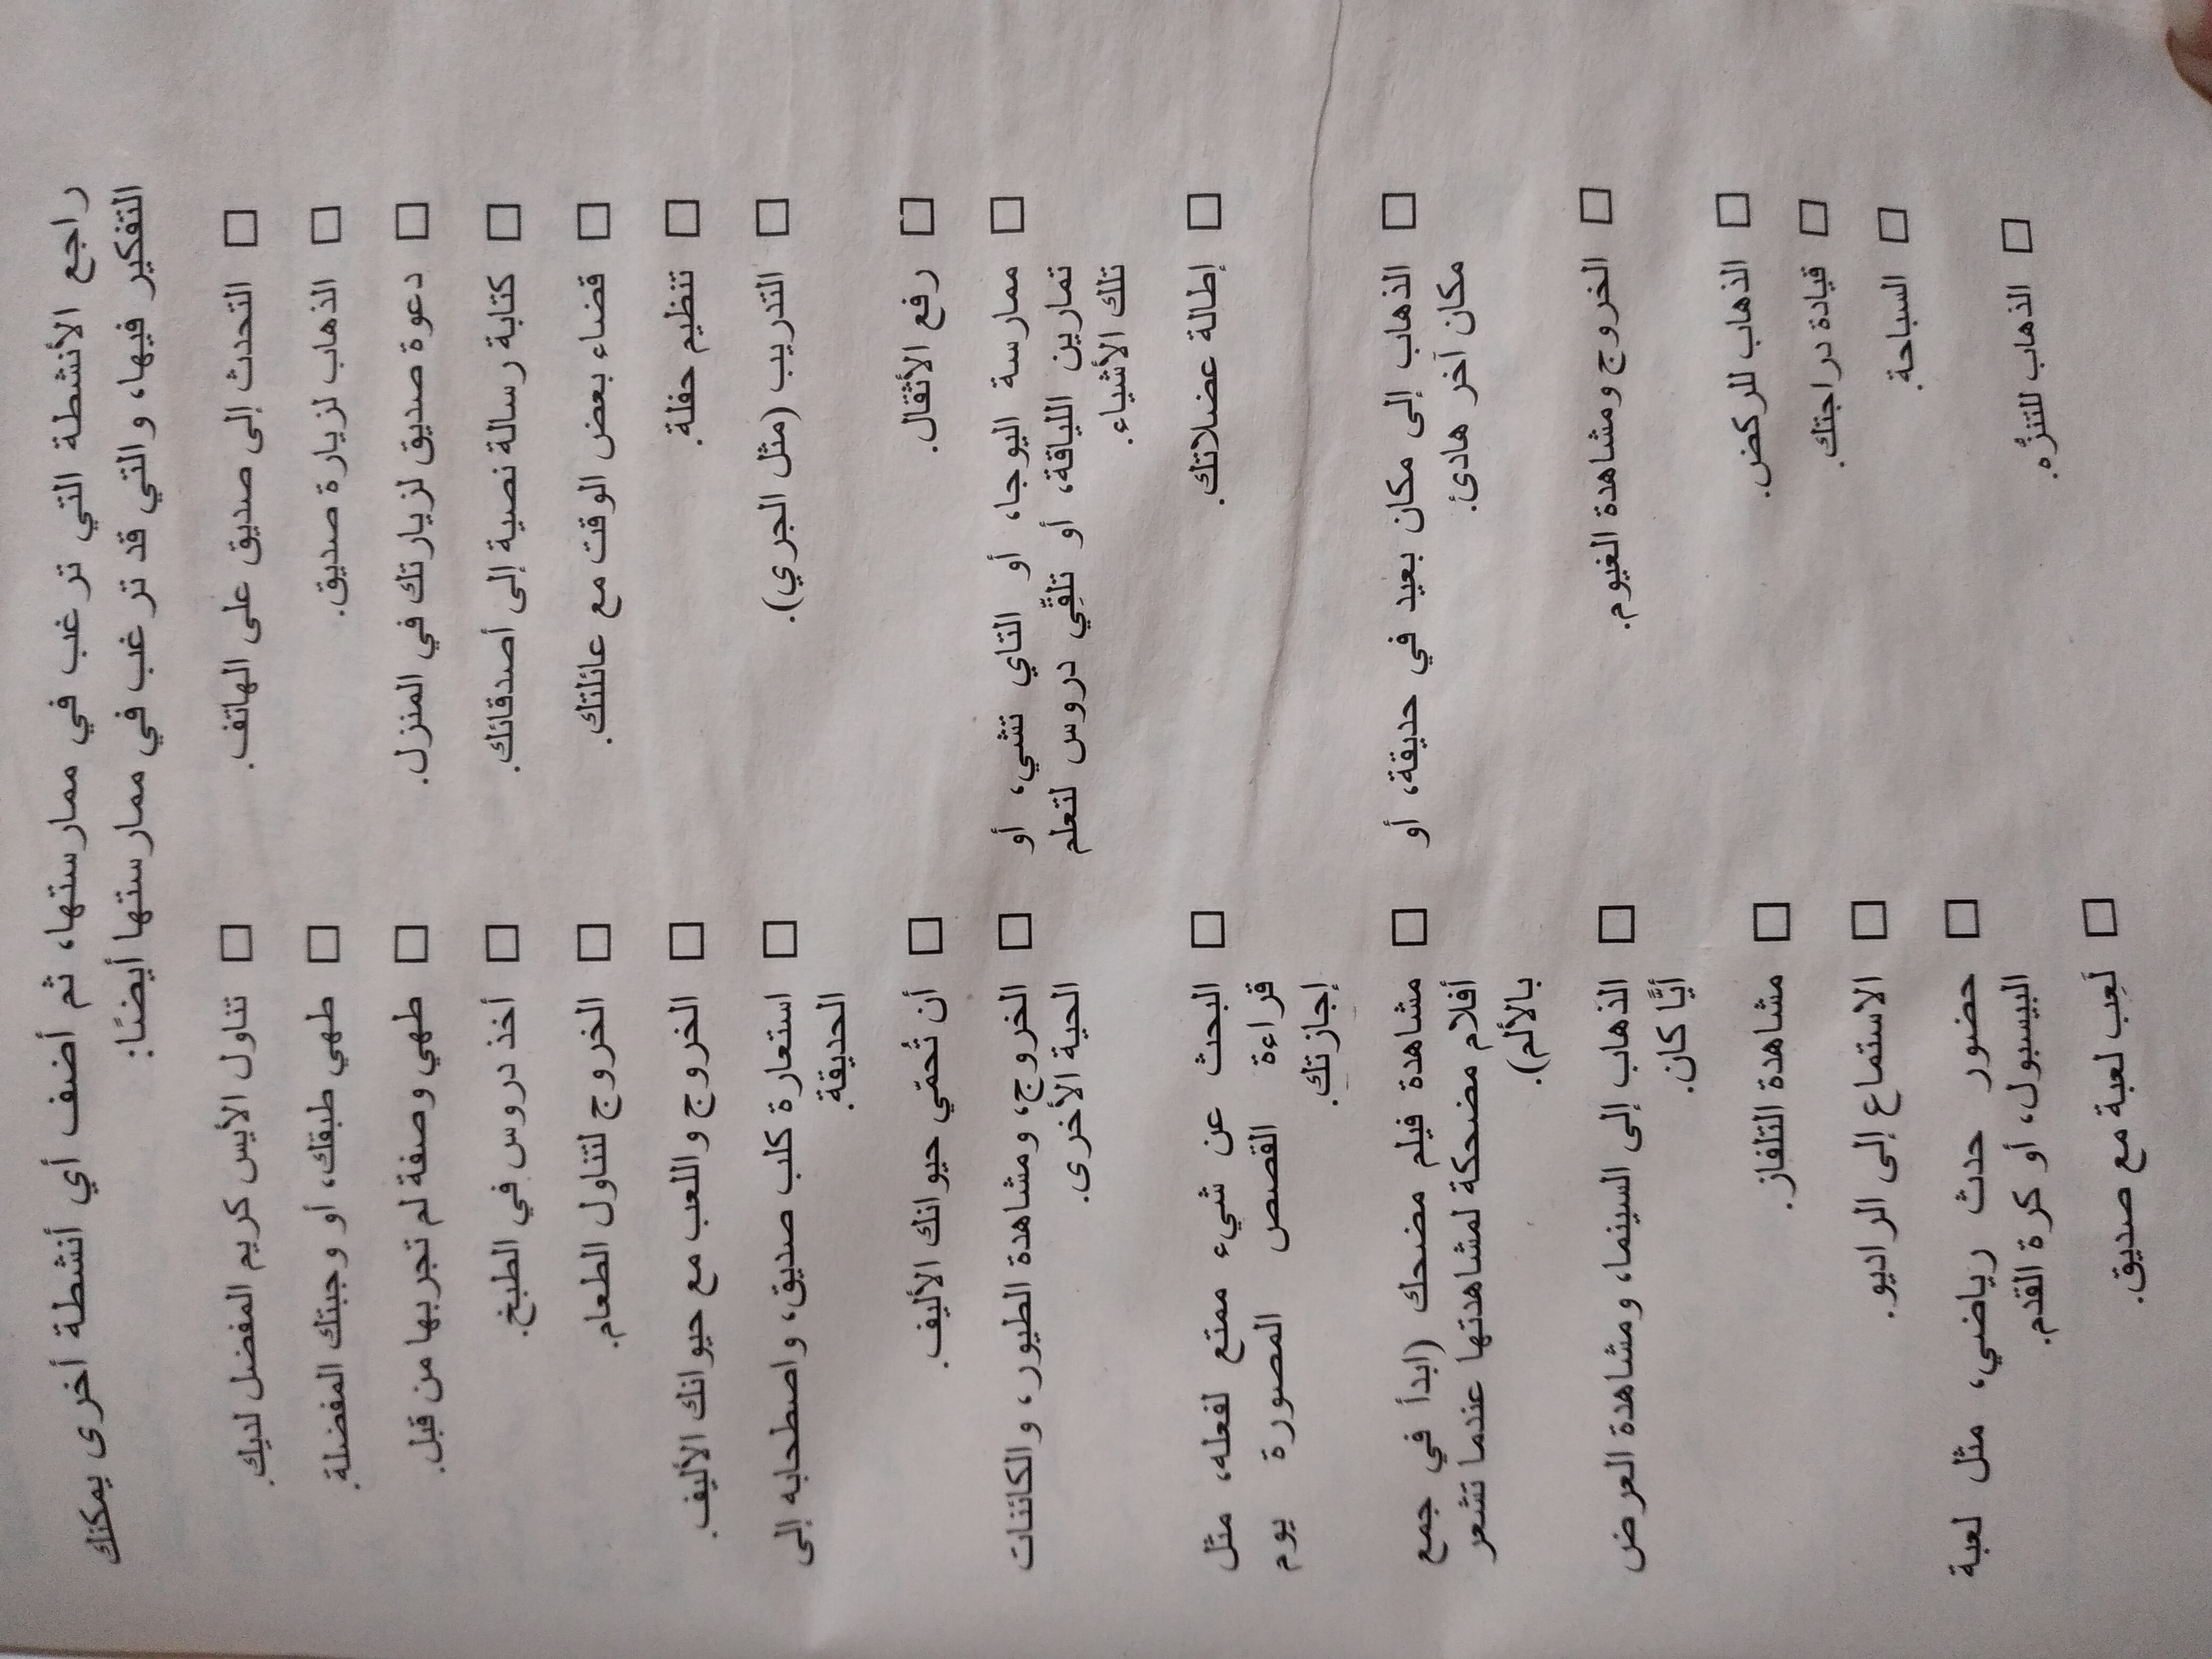 راجع الأنشطة التي ترغب في ممارستها، ثم أضف أي أنشطة أخرى يمكنك
التفكير فيها، والتي قد ترغب في ممارستها أيضًا:
□ التحدث إلى صديق على الهاتف.
□ الذهاب لزيارة صديق.
□ دعوة صديق لزيارتك في المنزل.
□ كتابة رسالة نصية إلى أصدقائك.
□ قضاء بعض الوقت مع عائلتك.
□ تنظيم حفلة.
□ التدريب (مثل الجري).
□ رفع الأثقال.
□ ممارسة اليوجا، أو التاي تشي، أو
تمارين اللياقة، أو تلقِّي دروس لتعلم
تلك الأشياء.
□ إطالة عضلاتك.
□ الذهاب إلى مكان بعيد في حديقة، أو
مكان آخر هادئ.
□ الخروج ومشاهدة الغيوم.
□ الذهاب للركض.
□ قيادة دراجتك.
□ السباحة.
□ الذهاب للتنزُّه.
□ تناول الآيس كريم المفضل لديك.
□ طهي طبقك، أو وجبتك المفضلة.
□ طهي وصفة لم تجربها من قبل.
□ أخذ دروس في الطبخ.
□ الخروج لتناول الطعام.
□ الخروج واللعب مع حيوانك الأليف.
□ استعارة كلب صديق، واصطحابه إلى
الحديقة.
□ أن تُحمّي حيوانك الأليف.
□ الخروج، ومشاهدة الطيور، والكائنات
الحية الأخرى.
□ البحث عن شيء ممتع لفعله، مثل
قراءة القصص المصورة يوم
إجازتك.
□ مشاهدة فيلم مضحك (ابدأ في جمع
أفلام مضحكة لمشاهدتها عندما تشعر
بالألم).
□ الذهاب إلى السينما، ومشاهدة العرض
أيًّا كان.
□ مشاهدة التلفاز.
□ الاستماع إلى الراديو.
□ حضور حدث رياضي، مثل لعبة
البيسبول، أو كرة القدم.
□ لَعِب لعبة مع صديق.